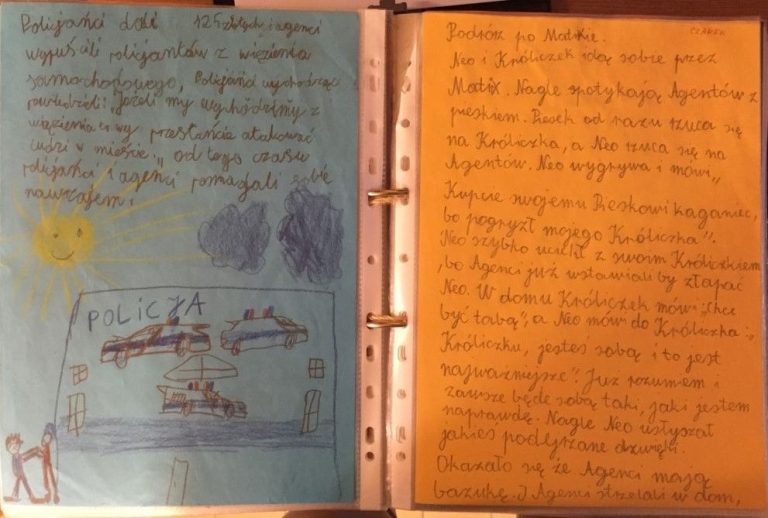 Policjanci dali 125 złotych i agenci
wypuścili policjantów z więzienia
samochodowego, Policjanci wychodząc
powiedzieli: "Jeżeli my wychodzimy z
więzienia to wy przestańcie atakować
ludzi w mieście." od tego czasu
policjanci i agenci pomagali sobie
nawzajem.
POLICJA
CZAREK
Podróż po Matrixie.
Neo i Króliczek idą sobie przez
Matrix. Nagle spotykają Agentów z
pieskiem. Piesek od razu rzuca się
na Króliczka, a Neo rzuca się na
Agentów. Neo wygrywa i mówi „
Kupcie swojemu Pieskowi kaganiec,
bo pogryzł mojego Króliczka".
Neo szybko uciekł z swoim Króliczkiem
, bo Agenci już wstawali by złapać
Neo. W domu Króliczek mówi „Chcę
być tobą", a Neo mówi do Króliczka: „
Króliczku, jesteś sobą i to jest
najważniejsze" Już rozumiem i
zawsze będę sobą taki, jaki jestem
naprawdę. Nagle Neo usłyszał
jakieś podejrzane dźwięki.
Okazało się że Agenci mają
bazukę. I Agenci strzelali w dom,